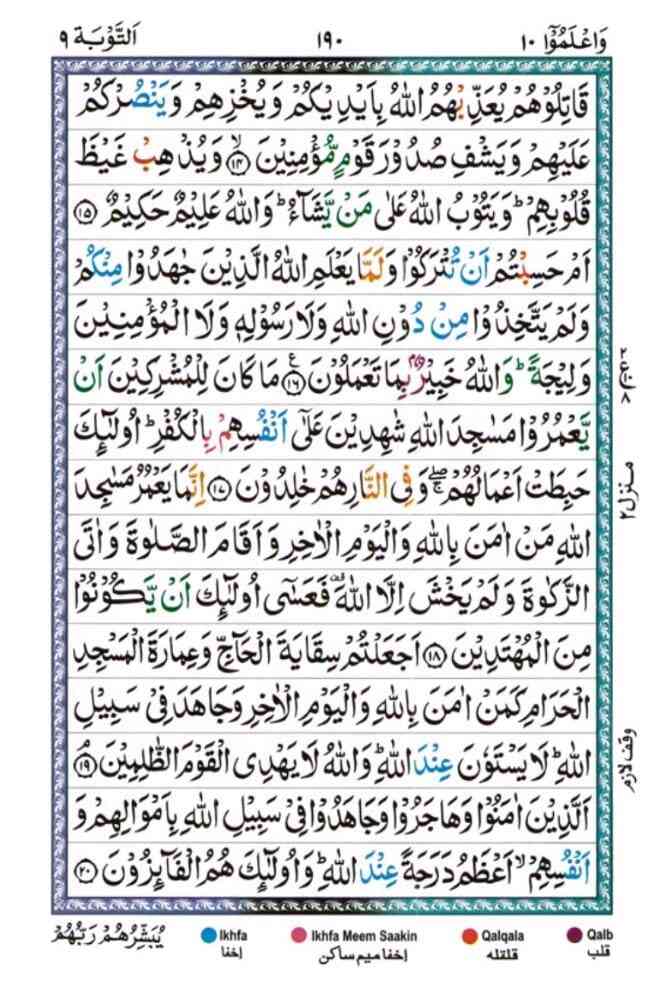 وَاعْلَمُوْۤا ١٠
١٩٠
اَلتَّوْبَة ٩
قَاتِلُوْهُمْ يُعَذِّبْهُمُ اللّٰهُ بِاَيْدِيْكُمْ وَيُخْزِهِمْ وَيَنْصُرْكُمْ
عَلَيْهِمْ وَيَشْفِ صُدُوْرَ قَوْمٍ مُّؤْمِنِيْنَ ۙ﴿١٤﴾ وَيُذْهِبْ غَيْظَ
قُلُوْبِهِمْ ؕ وَيَتُوْبُ اللّٰهُ عَلٰى مَنْ يَّشَآءُ ؕ وَاللّٰهُ عَلِيْمٌ حَكِيْمٌ ﴿١٥﴾
اَمْ حَسِبْتُمْ اَنْ تُتْرَكُوْا وَلَمَّا يَعْلَمِ اللّٰهُ الَّذِيْنَ جٰهَدُوْا مِنْكُمْ
وَلَمْ يَتَّخِذُوْا مِنْ دُوْنِ اللّٰهِ وَلَا رَسُوْلِهٖ وَلَا الْمُؤْمِنِيْنَ
وَلِيْجَةً ؕ وَاللّٰهُ خَبِيْرٌۢ بِمَا تَعْمَلُوْنَ ﴿١٦﴾ ع مَا كَانَ لِلْمُشْرِكِيْنَ اَنْ
يَّعْمُرُوْا مَسٰجِدَ اللّٰهِ شٰهِدِيْنَ عَلٰٓى اَنْفُسِهِمْ بِالْكُفْرِ ؕ اُولٰٓئِكَ
حَبِطَتْ اَعْمَالُهُمْ ۖۚ وَفِى النَّارِ هُمْ خٰلِدُوْنَ ﴿١٧﴾ اِنَّمَا يَعْمُرُ مَسٰجِدَ
اللّٰهِ مَنْ اٰمَنَ بِاللّٰهِ وَالْيَوْمِ الْاٰخِرِ وَاَقَامَ الصَّلٰوةَ وَاٰتَى
الزَّكٰوةَ وَلَمْ يَخْشَ اِلَّا اللّٰهَ ۫ فَعَسٰٓى اُولٰٓئِكَ اَنْ يَّكُوْنُوْا
مِنَ الْمُهْتَدِيْنَ ﴿١٨﴾ اَجَعَلْتُمْ سِقَايَةَ الْحَآجِّ وَعِمَارَةَ الْمَسْجِدِ
الْحَرَامِ كَمَنْ اٰمَنَ بِاللّٰهِ وَالْيَوْمِ الْاٰخِرِ وَجَاهَدَ فِىْ سَبِيْلِ
اللّٰهِ ؕ لَا يَسْتَوٗنَ عِنْدَ اللّٰهِ ؕ وَاللّٰهُ لَا يَهْدِى الْقَوْمَ الظّٰلِمِيْنَ ۘ﴿١٩﴾
اَلَّذِيْنَ اٰمَنُوْا وَهَاجَرُوْا وَجَاهَدُوْا فِىْ سَبِيْلِ اللّٰهِ بِاَمْوَالِهِمْ وَ
اَنْفُسِهِمْ ۙ اَعْظَمُ دَرَجَةً عِنْدَ اللّٰهِ ؕ وَاُولٰٓئِكَ هُمُ الْفَآئِزُوْنَ ﴿٢٠﴾
منزل ٢
وقف لازم
يُبَشِّرُهُمْ رَبُّهُمْ
Ikhfa
إخفا
Ikhfa Meem Saakin
إخفا ميم ساكن
Qalqala
قلقله
Qalb
قلب